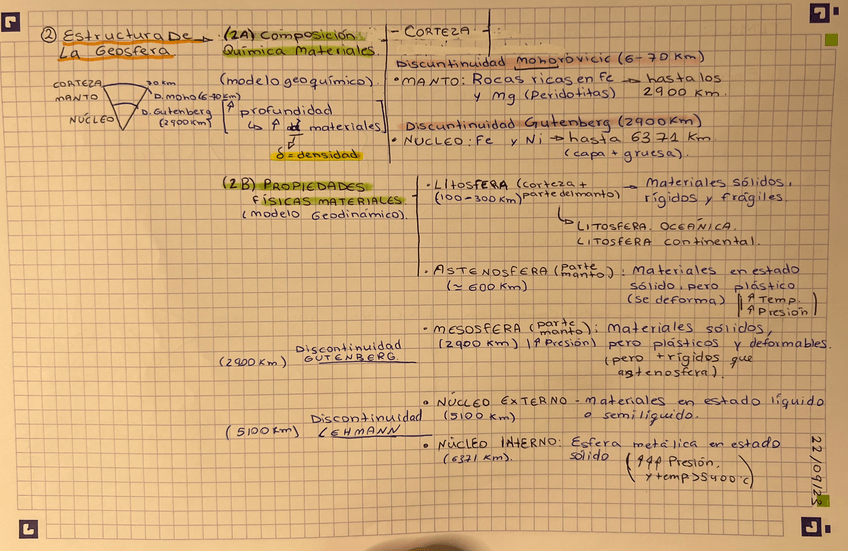 ② Estructura De → (2A) Composición
La Geosfera Química Materiales.
(modelo geoquímico)
CORTEZA 70 km
MANTO D. moho (6-70 km)
NÚCLEO D. Gutenberg
(2900 km)
[↑ profundidad
↳ ↑ d materiales]
δ = densidad
- CORTEZA
Discuntinuidad mohorovicic (6-70 Km)
• MANTO: Rocas ricas en Fe → hasta los
y Mg (Peridotitas) 2900 km.
Discuntinuidad Gutenberg (2900 km)
• NUCLEO: Fe y Ni → hasta 6371 km
(capa + gruesa).
(2B) PROPIEDADES
FÍSICAS MATERIALES
(modelo Geodinámico).
• LITOSFERA (corteza + → Materiales sólidos,
(100-300 Km) parte del manto) rígidos y frágiles.
↳ LITOSFERA OCEÁNICA.
LITOSFERA continental.
• ASTENOSFERA (parte manto): Materiales en estado
(≃ 600 Km) sólido, pero plástico
(se deforma) (↑ Temp.
↑ Presión)
• MESOSFERA (parte manto): Materiales sólidos,
(2900 km) (↑ Presión) pero plásticos y deformables.
(pero + rígidos que
astenosfera).
Discontinuidad
(2900 Km) GUTENBERG
• NÚCLEO EXTERNO - materiales en estado líquido
(5100 km) o semilíquido.
Discontinuidad
(5100 Km) LEHMANN
• NÚCLEO INTERNO: Esfera metálica en estado
(6371 km). sólido (↑↑↑ Presión,
y temp > 5400°c)
22/09/23